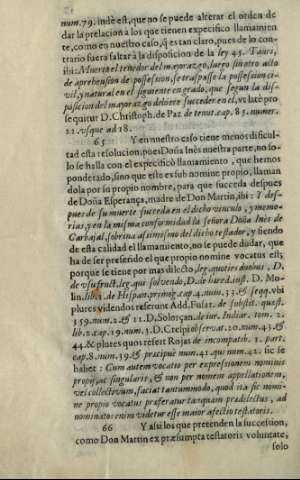 num.79. Inde est, que no se puede alterar el orden de
dar la prelacion a los que tienen expecifico llamamien
te, como en nuestro caso, q̃ es tan claro, pues de lo con-
trario fuera faltar à la disposicion de la ley 45. Tauri,
ibi: Muerto el tenedor del mayorazgo, luego sin otro alto
de aprehension de possession, se traspasse la possession ci-
vil, y natural en el siguiente en grado, que segun la dis-
posicion del mayorazgo debiere succeder en el, ut latè pro
sequitur D. Christoph. de Paz de tenut. cap. 83. numer.
11. usque ad 18.
65 Y en nuestro caso tiene menos dificul-
tad esta resolucion, pues Doña Inès nuestra parte, no so-
lo se halla con el expecifico llamamiento, que hemos
ponderado, sino que este es sub nomine proprio, llaman
dola por su proprio nombre, para que succeda despues
de Doña Esperança, madre de Don Martin, ibi: Y des-
pues de su muerte succeda en el dicho vinculo, y memo-
rias, y en la misma conformidad la señora Doña Inès de
Carbajal, sobrina assimismo del dicho testador, y siendo
de esta calidad el llamamiento, no se puede dudar, que
ha de ser preferido el que proprio nomine vocatus est;
porque se tiene por mas dilecto, leg. quoties duobus, D.
de usufruct. leg. qui solvendo, D. de hæred. inst. D. Mo-
lin. lib. 1. de Hispan. primog. cap. 4. num. 33. & seqq. ubi
plures videndos referunt Add. Fusar. de substit. quæst.
359. num. 2. & 11. D. Solorçan. de iur. Indiar. tom. 2.
lib. 2. cap. 19. num. 3. D. Crespi observat. 20. num. 43. &
44. & plures quos refert Rojas de incompatib. 1. part.
cap. 8. num. 39. & præcipuè num. 41. usque num. 42. sic se
habet: Cum autem vocatio per expressionem nominis
proprij ac singularis, & non per nomen appellationem,
vel collectivum, faciat tantummodo, quod ita sic nomi-
ne proprio vocatus præferatur tanquam prædilectus, ad
nominatos enim videtur esse maior affectio testatoris.
66 Y assi los que pretenden la succession,
como Don Martin ex præsumpta testatoris voluntate,
solo